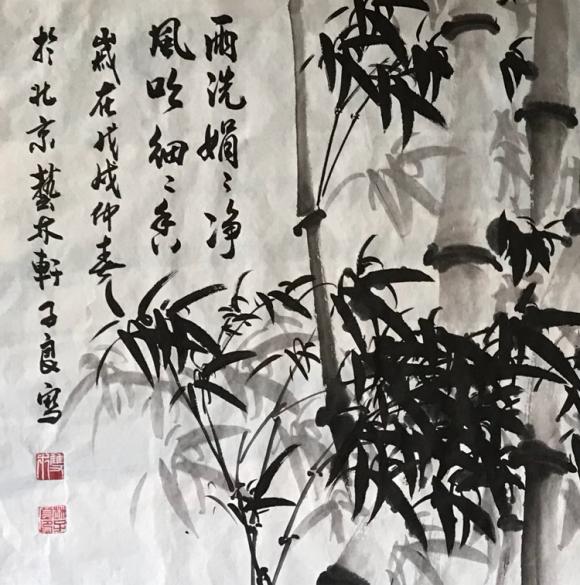 雨洗娟〻净
風吹細〻香
歲在戊戌仲春
於北京藝木軒子良寫